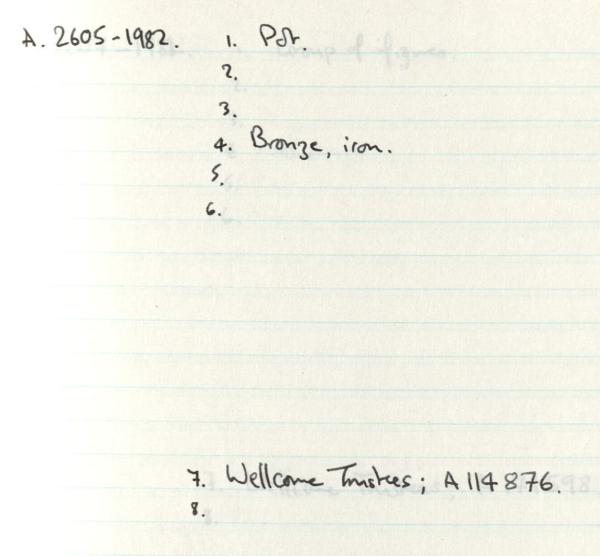 A. 2605-1982. 1. Pot.
2.
3.
4. Bronze, iron.
5.
6.
7. Wellcome Trustees; A 114876.
8.